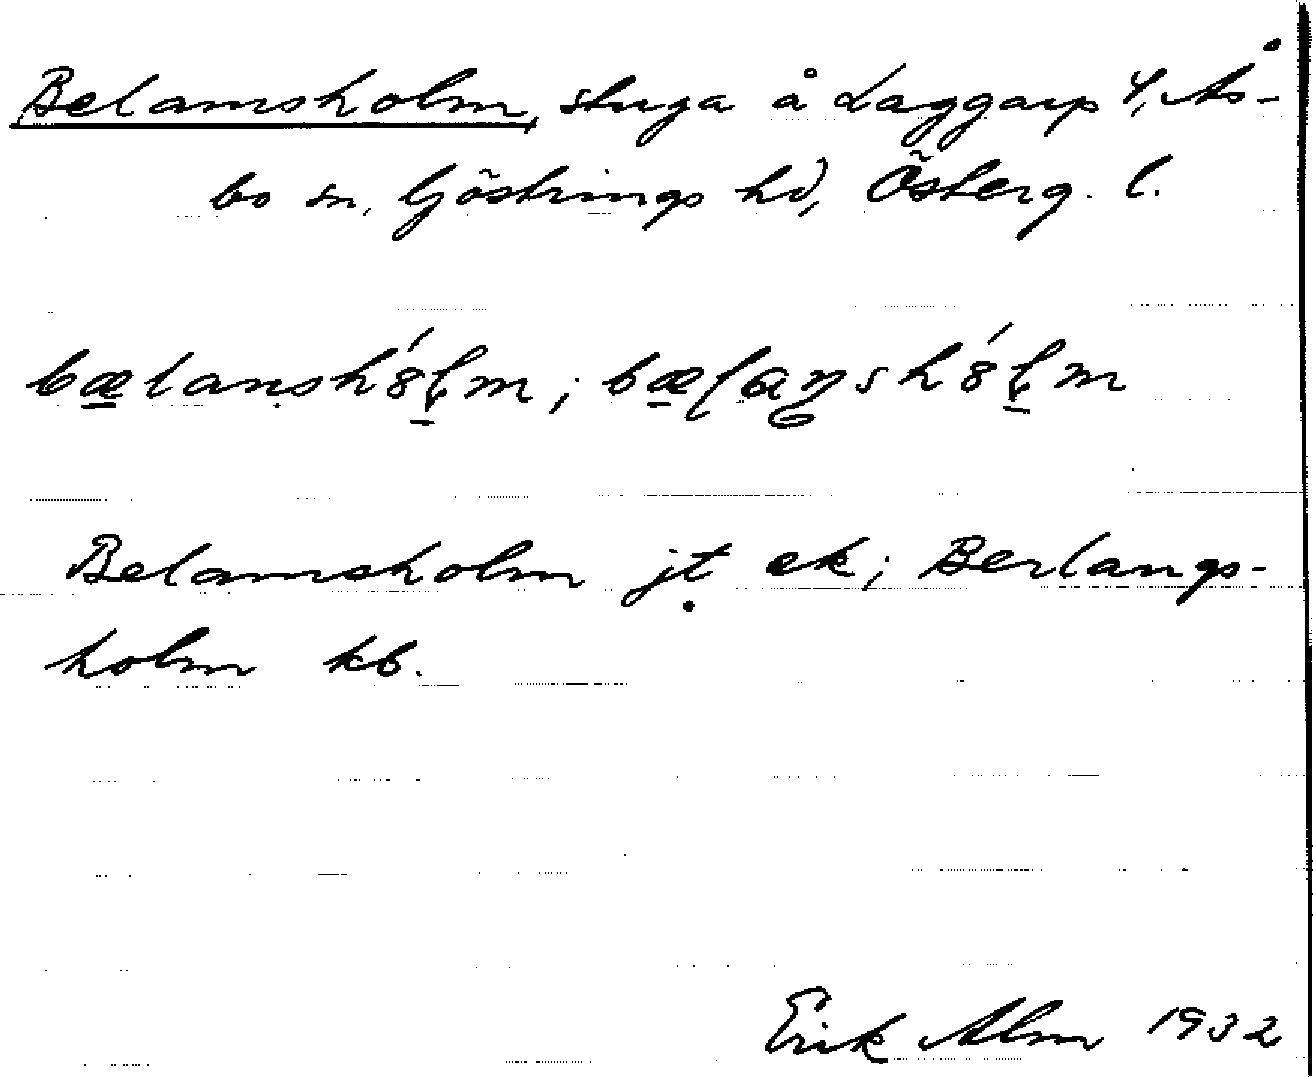 Belamsholm, stuga å Laggarp 4, Ås-
bo sn, Göstrings hd, Österg. l.
bælansh́ɞl̠m; bælaŋsh́ɞl̠m
Belamsholm jt ek; Berlangs-
holm kb.
Erik Alm 1932